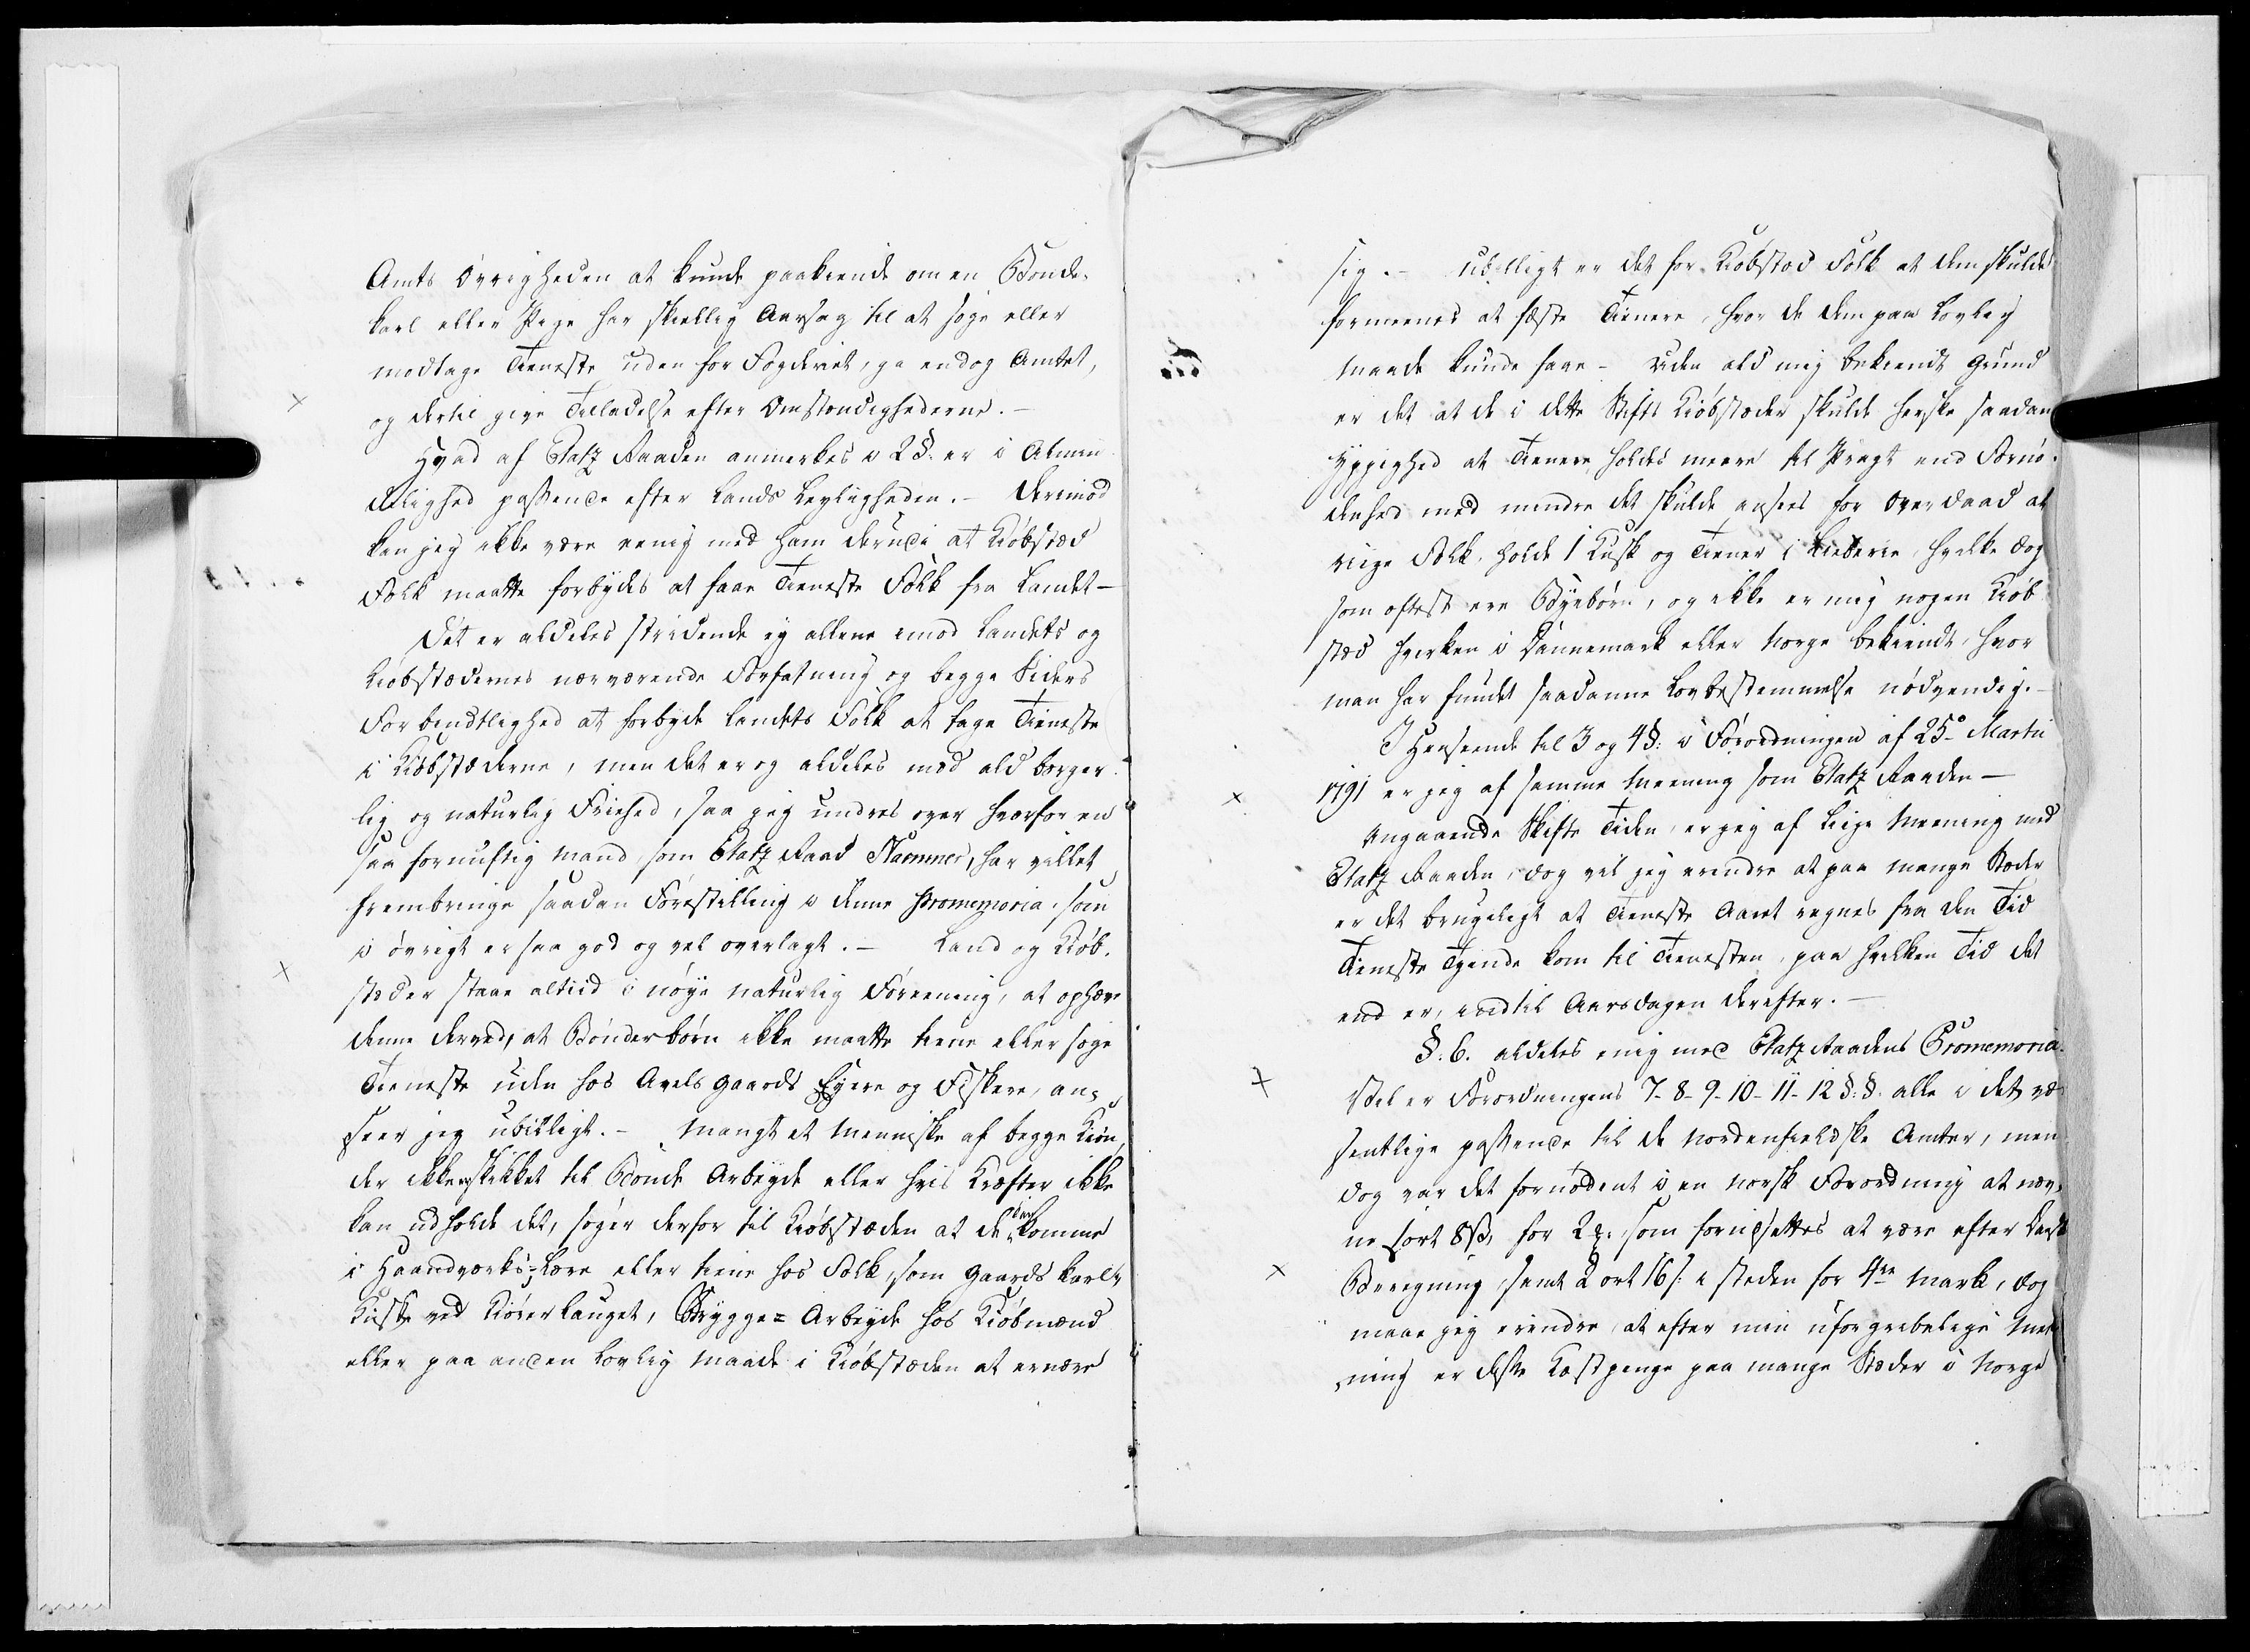 Amts Øvrigheden at kunde paakiende om en Bonde-
karl eller Pige har skiellig Aarsag til at søge eller
modtage Tieneste uden for Fogderiet, ja endog Amtet,
og dertil give Tilladelse efter Omstændighederne. -
Hvad af Etatz Raaden anmerkes v 2 §. er i Almin-
delighed passende efter Lands Leyligheden. - Derimod
kan jeg ikke være eenig med ham derudi at Kiøbstæd
Folk maatte forbydes at faae Tieneste Folk fra Landet -
Det er aldeles stridende ey allene imod Landets og
Kiøbstædernes nærværende Forfatning og begge Siders
Forbindtlighed at forbyde Landets Folk at tage Tieneste
i Kiøbstæderne, men det er og aldeles mod ald borger-
lig og naturlig Friehed, saa jeg undres over hvorfor en
saa fornuftig Mand som Etatz Raad Hammer, har villet
frembringe saadan Forestilling v denne Promemoria, som
i øvrigt er saa god og vel overlagt. - Land og Kiøb-
stæder staae altiid i nøye naturlig Foreening, at ophæve
denne derved, at Bønderbørn ikke maatte tiene eller søge
Tieneste uden hos Avels Gaards Eyere og Fiskere, an-
seer jeg ubilligt. - Mangt et Menniske af begge Kiøn,
der ikke er skikket til Bonde Arbeyde eller hvis Kræfter ikke
kan udholde det, søger derfor til Kiøbstæden at de der komme
i Haandværks-Lære eller tiene hos Folk, som Gaards Karle,
Kuske ved Kiørerlauget, Brygge= Arbeyde hos Kiøbmænd
eller paa anden lovlig Maade i Kiøbstæden at ernære
sig. - Ubilligt er det for Kiøbstæd Folk at dem skulde
formeenes at fæste Tienere, hvor de dem paa lovlig
Maade kunde faae - Uden ald mig bekiendt Grund
er det at de i dette Stifts Kiøbstæder skulde herske saadan
Yppighed at Tienere holdes meere til Pragt end Fornø-
denhed med mindre det skulde ansees for Overdaad at
riige Folk holde 1 Kusk og Tiener i Lieberie, hvilke dog
som oftest ere Byebørn, og ikke er mig nogen Kiøb-
stæd hverken i Dannemark eller Norge bekiendt, hvor
man har fundet saadanne Lovbestemmelse nødvendig. -
I Henseende til 3 og 4 §: v Forordningen af 25de Martii
1791 er jeg af samme Meening som Etatz Raaden -
Angaaende Skifte Tiden, er jeg af liige Meening med
Etatz Raaden, dog vil jeg erindre at paa mange Stæder
er det brugeligt at Tieneste Aaret regnes fra den Tid
Tieneste Tyende kom til Tienesten, paa hvilken Tid det
end er, indtil Aarsdagen derefter. -
§. 6. aldeles enig med Etatz Raadens Promemoria.
Vel er Forordningens 7- 8- 9- 10- 11- 12 §.§. alle i det væ-
sentlige passende til de Nordenfieldske Amter, men
dog var det fornødent i en norsk Forordning at næv-
ne 1 ort 8 ß, for 2 , som forudsættes at være efter
Beregning, samt 2 ort 16 ß i steden for 4re Mark, dog
maae jeg erindre, at efter min uforgribelige Mee-
ning er disse Kostpenge paa mange Stæder i Norge